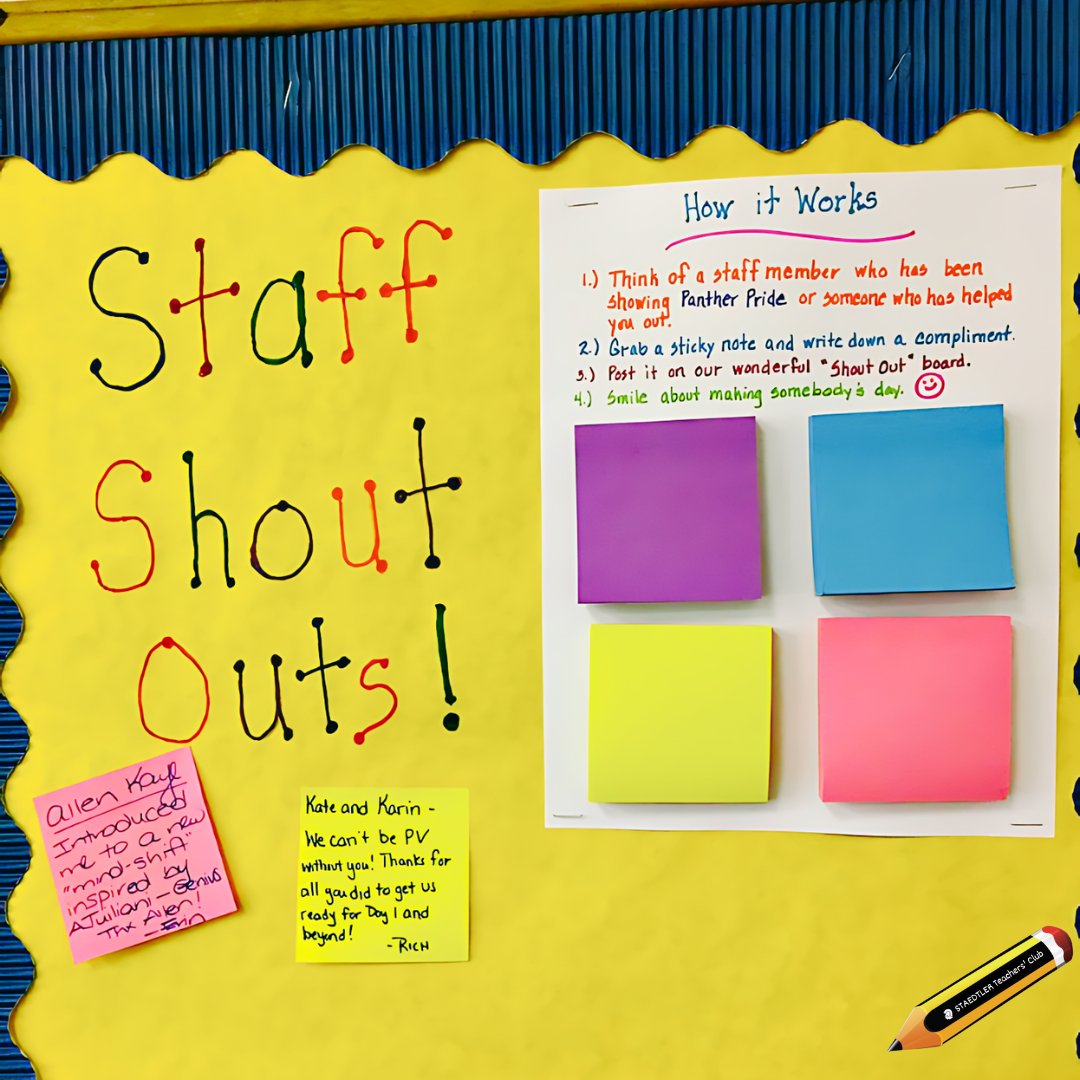 Staff
Shout
Outs!
How it Works
1.) Think of a staff member who has been
showing Panther Pride or someone who has helped
you out.
2.) Grab a sticky note and write down a compliment.
3.) Post it on our wonderful "Shout Out" board.
4.) Smile about making somebody's day.
Allen Kaye
Introduced
me to a new
"mind-shift"
inspired by
AJuiliani - Genius
Thx Allen!
- Erin
Kate and Karin -
We can't be PV
without you! Thanks for
all you did to get us
ready for Day 1 and
beyond!
- RICH
STAEDTLER Teachers' Club